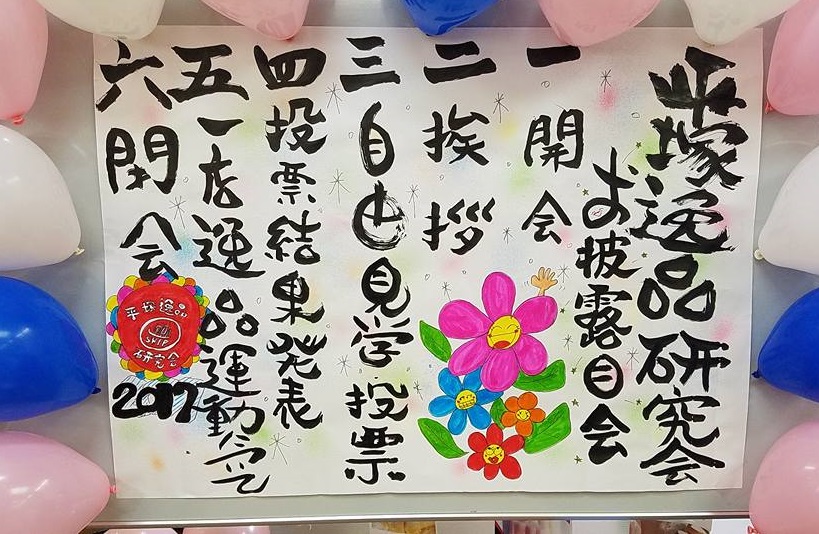 平塚逸品研究会
お披露目会
一 開会
二 挨拶
三 自由見学投票
四 投票結果発表
五 一店逸品運動
六 閉会
平塚逸品
SHIP
研究会
2017